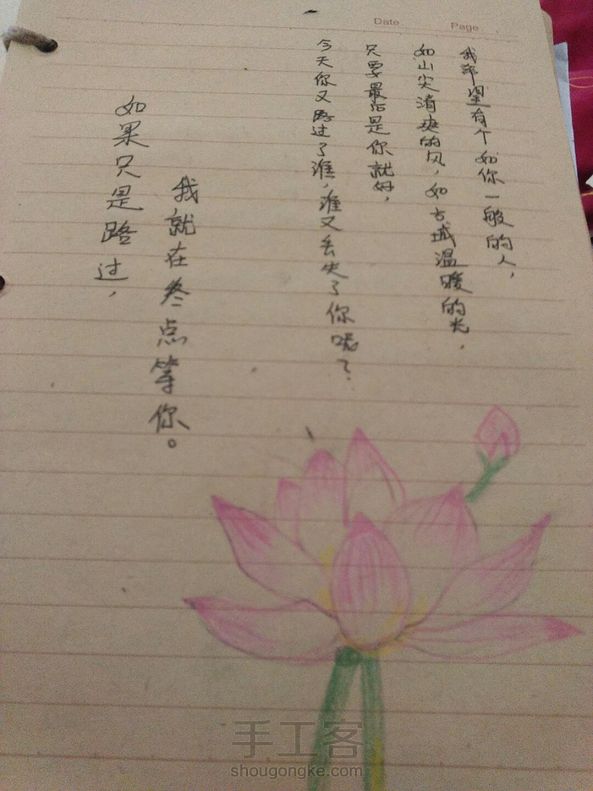 Date
Page
我希望有个如你一般的人，
如山尖清爽的风，如古城温暖的光，
只要最后是你就好，
今天你又路过了谁，谁又丢失了你呢？
如果只是路过，
我就在叁点等你。
手工客
shougongke.com